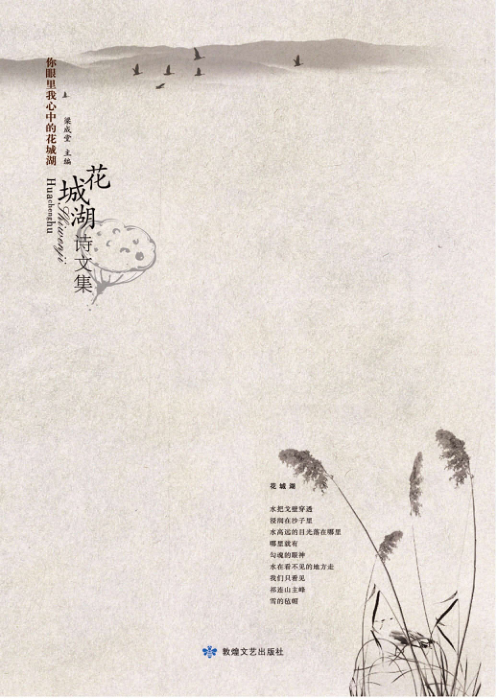 你眼里我心中的花城湖
梁成堂 主编
花城湖
诗文集
Huachenghu
Shiwenji
花城湖
水把戈壁穿透
浸润在沙子里
水高远的目光落在哪里
哪里就有
勾魂的眼神
水在看不见的地方走
我们只看见
祁连山主峰
雪的毡帽
敦煌文艺出版社